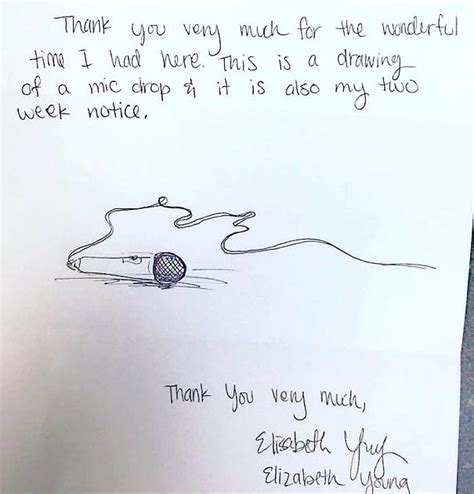 Thank you very much for the wonderful
time I had here. This is a drawing
of a mic drop & it is also my two
week notice.
Thank You very much,
Elisabeth
Elizabeth Young